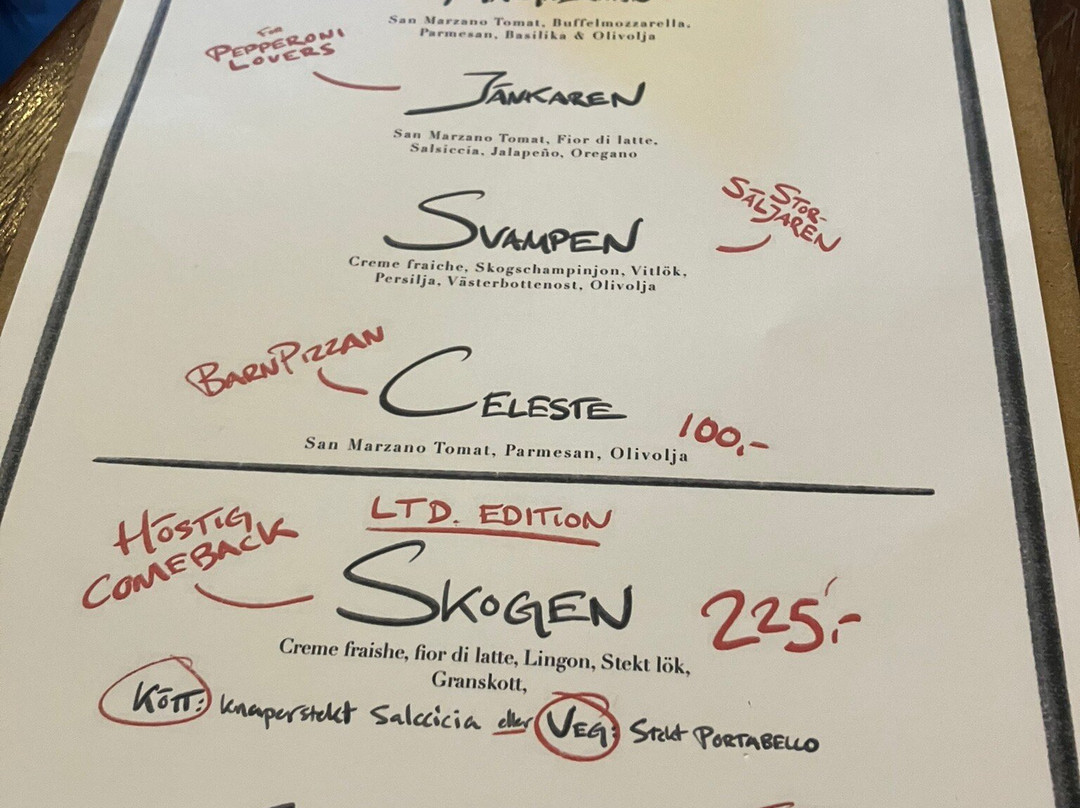 San Marzano Tomat, Buffelmozzarella,
Parmesan, Basilika & Olivolja
FOR
PEPPERONI
LOVERS
JÄNKAREN
San Marzano Tomat, Fior di latte,
Salsiccia, Jalapeño, Oregano
STOR-
SÄLJAREN
SVAMPEN
Creme fraiche, Skogschampinjon, Vitlök,
Persilja, Västerbottenost, Olivolja
BARNPIZZAN
CELESTE
100,-
San Marzano Tomat, Parmesan, Olivolja
HÖSTIG
COMEBACK
LTD. EDITION
SKOGEN
225:-
Creme fraishe, fior di latte, Lingon, Stekt lök,
Granskott,
KÖTT: knaperstekt Salccicia eller VEG: Stekt PORTABELLO